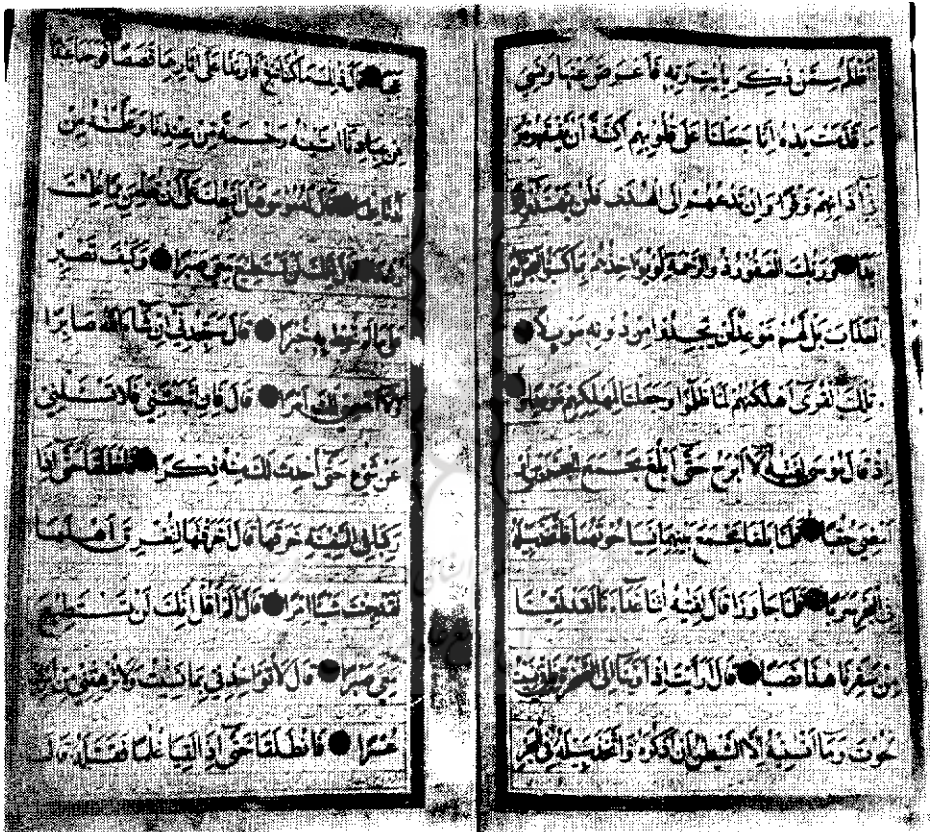 أَظْلَمُ مِمَّنْ ذُكِّرَ بِآيٰتِ رَبِّهِ فَأَعْرَضَ عَنْهَا وَنَسِيَ
مَا قَدَّمَتْ يَدٰهُ إِنَّا جَعَلْنَا عَلَى قُلُوبِهِمْ أَكِنَّةً أَنْ يَفْقَهُوهُ
وَفِي آذَانِهِمْ وَقْرًا وَإِنْ تَدْعُهُمْ إِلَى الْهُدَى فَلَنْ يَهْتَدُوا إِذًا
أَبَدًا وَرَبُّكَ الْغَفُورُ ذُو الرَّحْمَةِ لَوْ يُؤَاخِذُهُمْ بِمَا كَسَبُوا لَعَجَّلَ لَهُمُ
الْعَذَابَ بَلْ لَهُمْ مَوْعِدٌ لَنْ يَجِدُوا مِنْ دُونِهِ مَوْئِلًا
تِلْكَ الْقُرَى أَهْلَكْنٰهُمْ لَمَّا ظَلَمُوا وَجَعَلْنَا لِمَهْلِكِهِمْ مَوْعِدًا وَ
إِذْ قَالَ مُوسَى لِفَتٰهُ لَا أَبْرَحُ حَتَّى أَبْلُغَ مَجْمَعَ الْبَحْرَيْنِ أَوْ
أَمْضِيَ حُقُبًا فَلَمَّا بَلَغَا مَجْمَعَ بَيْنِهِمَا نَسِيَا حُوتَهُمَا فَاتَّخَذَ سَبِيلَهُ
فِي الْبَحْرِ سَرَبًا فَلَمَّا جَاوَزَا قَالَ لِفَتٰهُ آتِنَا غَدَاءَنَا لَقَدْ لَقِينَا
مِنْ سَفَرِنَا هٰذَا نَصَبًا قَالَ أَرَأَيْتَ إِذْ أَوَيْنَا إِلَى الصَّخْرَةِ فَإِنِّي نَسِيتُ
الْحُوتَ وَمَا أَنْسٰنِيهُ إِلَّا الشَّيْطٰنُ أَنْ أَذْكُرَهُ وَاتَّخَذَ سَبِيلَهُ فِي الْبَحْرِ
عَجَبًا قَالَ ذٰلِكَ مَا كُنَّا نَبْغِ فَارْتَدَّا عَلَى آثَارِهِمَا قَصَصًا فَوَجَدَا عَبْدًا
مِنْ عِبَادِنَا آتَيْنٰهُ رَحْمَةً مِنْ عِنْدِنَا وَعَلَّمْنٰهُ مِنْ
لَدُنَّا عِلْمًا قَالَ لَهُ مُوسَى هَلْ أَتَّبِعُكَ عَلَى أَنْ تُعَلِّمَنِ مِمَّا عُلِّمْتَ
رُشْدًا قَالَ إِنَّكَ لَنْ تَسْتَطِيعَ مَعِيَ صَبْرًا وَكَيْفَ تَصْبِرُ
عَلَى مَا لَمْ تُحِطْ بِهِ خُبْرًا قَالَ سَتَجِدُنِي إِنْ شَاءَ اللّٰهُ صَابِرًا
وَلَا أَعْصِي لَكَ أَمْرًا قَالَ فَإِنِ اتَّبَعْتَنِي فَلَا تَسْأَلْنِي
عَنْ شَيْءٍ حَتَّى أُحْدِثَ لَكَ مِنْهُ ذِكْرًا فَانْطَلَقَا حَتَّى إِذَا
رَكِبَا فِي السَّفِينَةِ خَرَقَهَا قَالَ أَخَرَقْتَهَا لِتُغْرِقَ أَهْلَهَا
لَقَدْ جِئْتَ شَيْئًا إِمْرًا قَالَ أَلَمْ أَقُلْ إِنَّكَ لَنْ تَسْتَطِيعَ
مَعِيَ صَبْرًا قَالَ لَا تُؤَاخِذْنِي بِمَا نَسِيتُ وَلَا تُرْهِقْنِي مِنْ أَمْرِي
عُسْرًا فَانْطَلَقَا حَتَّى إِذَا لَقِيَا غُلٰمًا فَقَتَلَهُ قَالَ